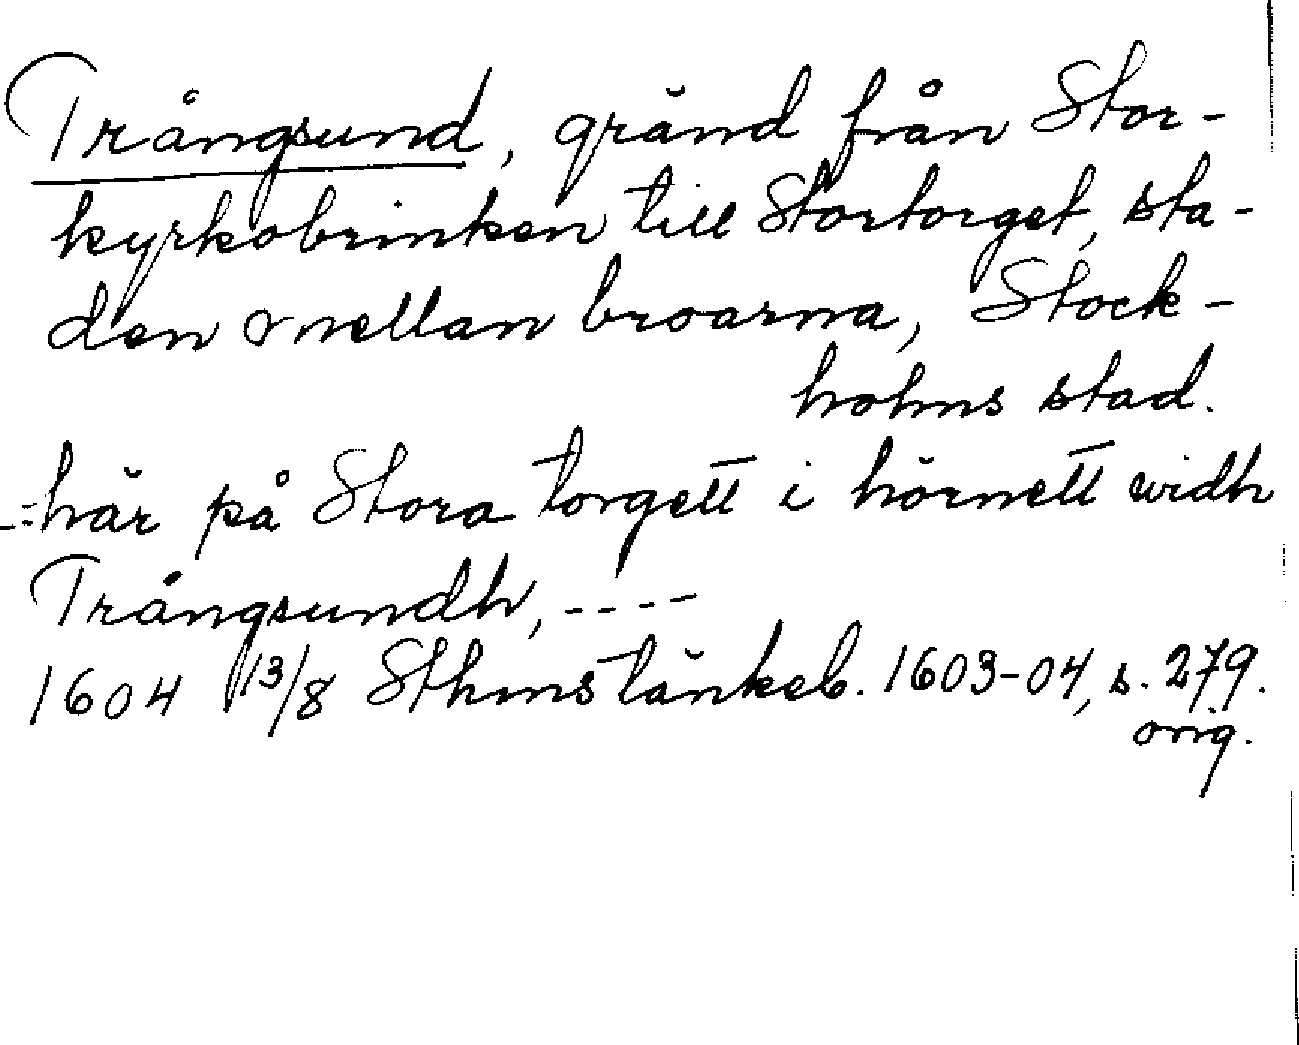 Trångsund, gränd från Stor-
kyrkobrinken till Stortorget, sta-
den mellan broarna, Stock-
holms stad.
-- här på Stora torgett i hörnett widh
Trångsundh, ----
1604 13/8 Sthms tänkeb. 1603-04, s. 279.
orig.